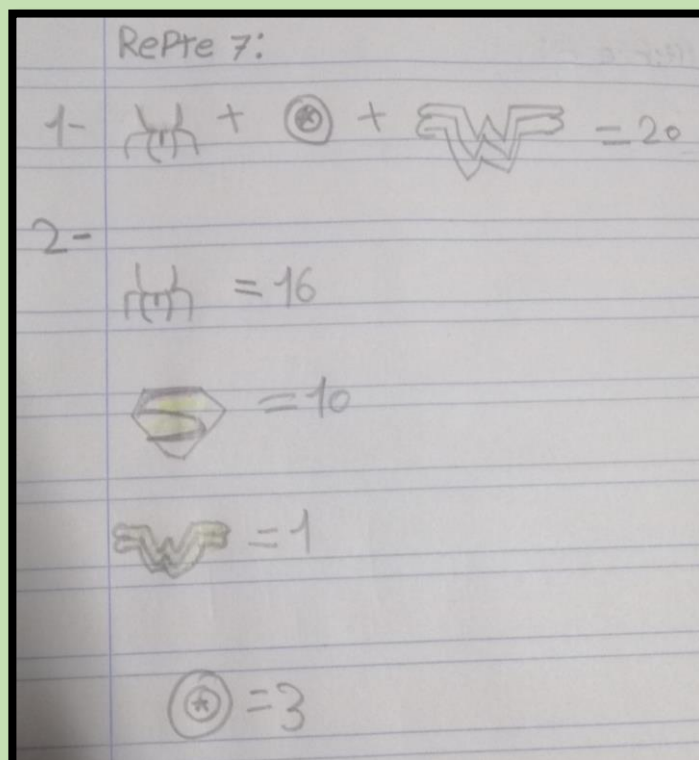 RePte 7:
1- + + = 20
2-
= 16
= 10
= 1
= 3